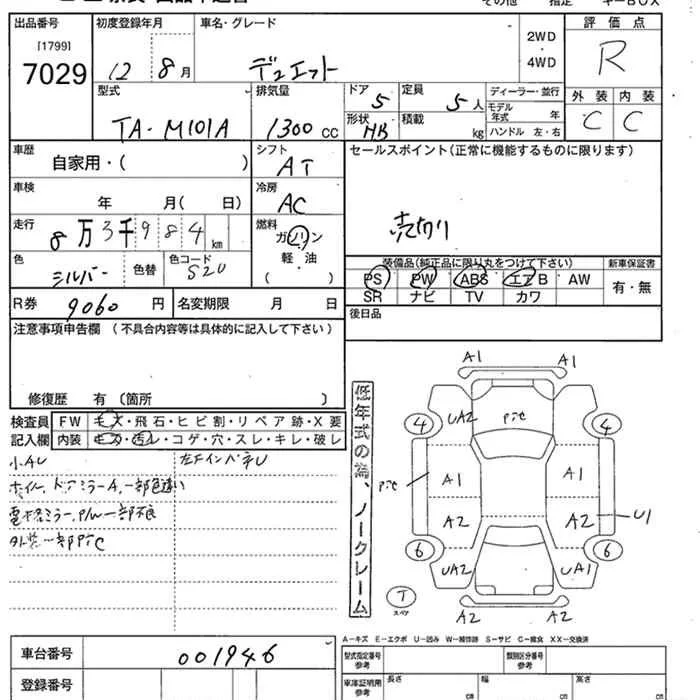 その他 指定 キーBOX
出品番号 初度登録年月 車名・グレード 評価点
[1799]
7029
12 8月 デュエット 2WD・4WD R
型式 排気量 ドア 定員 ディーラー・並行 外装 内装
TA-M101A 1300cc 5 5人 モデル年式 年 C C
形状 HB 積載 kg ハンドル 左・右
車歴 シフト セールスポイント(正常に機能するものに限ります)
自家用・( ) AT
車検 冷房
年 月( 日) AC
走行 燃料 売切り
8万3千984km ガソリン
軽・油
( )
色 色替 色コード 装備品(純正品に限り丸をつけて下さい) 新車保証書
シルバー S20 PS PW ABS エアB AW 有・無
SR ナビ TV カワ
R券 9060円 名変期限 月 日 後日品
注意事項申告欄(不具合内容等は具体的に記入して下さい)
修復歴 有〔箇所 〕
検査員 FW 毛大・飛石・ヒビ割・リペア跡・X要
記入欄 内装 ・汚レ・コゲ・穴・スレ・キレ・破レ
小AU
ホイル、ドアミラーA、一部色違い
電格ミラー、P/W一部不良
外装一部PťC
低年式の為、ノークレーム
A1 A1
UA2 PťC
4 4
PťC A1 A1
A2 A2 U1
6 6
UA2 UA1
T スペア
A2 A2
A-キズ E-エクボ U-凹み W-補修跡 S-サビ C-腐食 XX-交換済
車台番号 001946 型式指定番号参考 類別区分番号参考
登録番号 車庫証明用参考 長さ cm 幅 cm 高さ cm